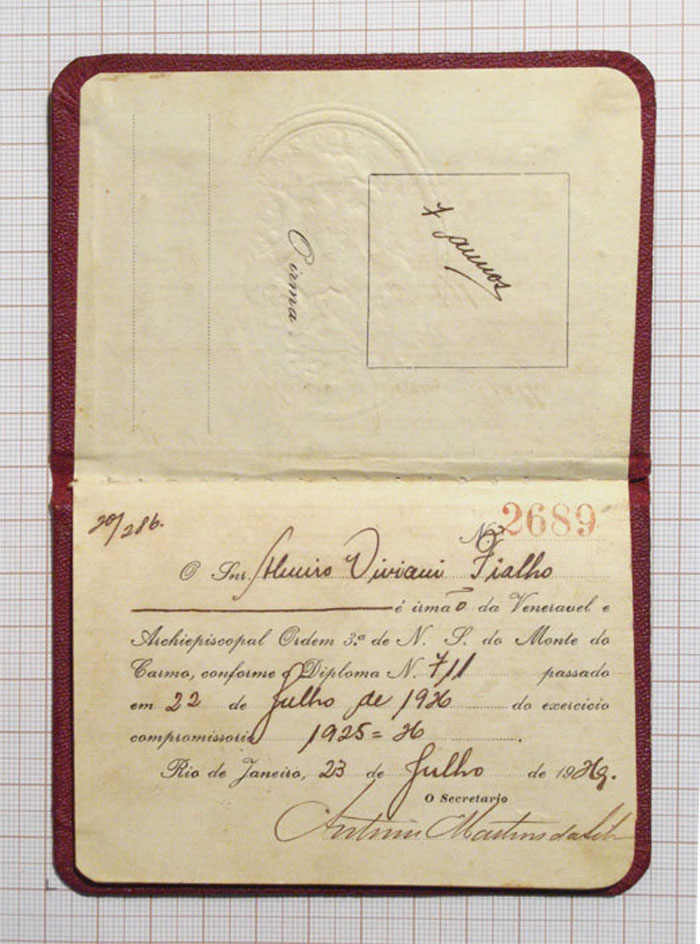 7 annos
O irmã
20/286.
Nº 2689
O Snr. Almiro Viviani Fialho
é irmão da Veneravel e
Archiepiscopal Ordem 3.ª de N. S. do Monte do
Carmo, conforme o Diploma N. 711 passado
em 22 de Julho de 1926 do exercicio
compromissorio 1925 = 26.
Rio de Janeiro, 23 de Julho de 1929.
O Secretario
Antonio Martins da